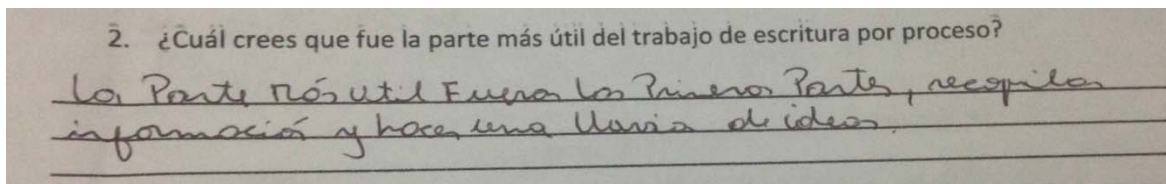 2. ¿Cuál crees que fue la parte más útil del trabajo de escritura por proceso?
La Parte más util Fuera la Primera Parte, recopilar
información y hacer una lluvia de ideas.